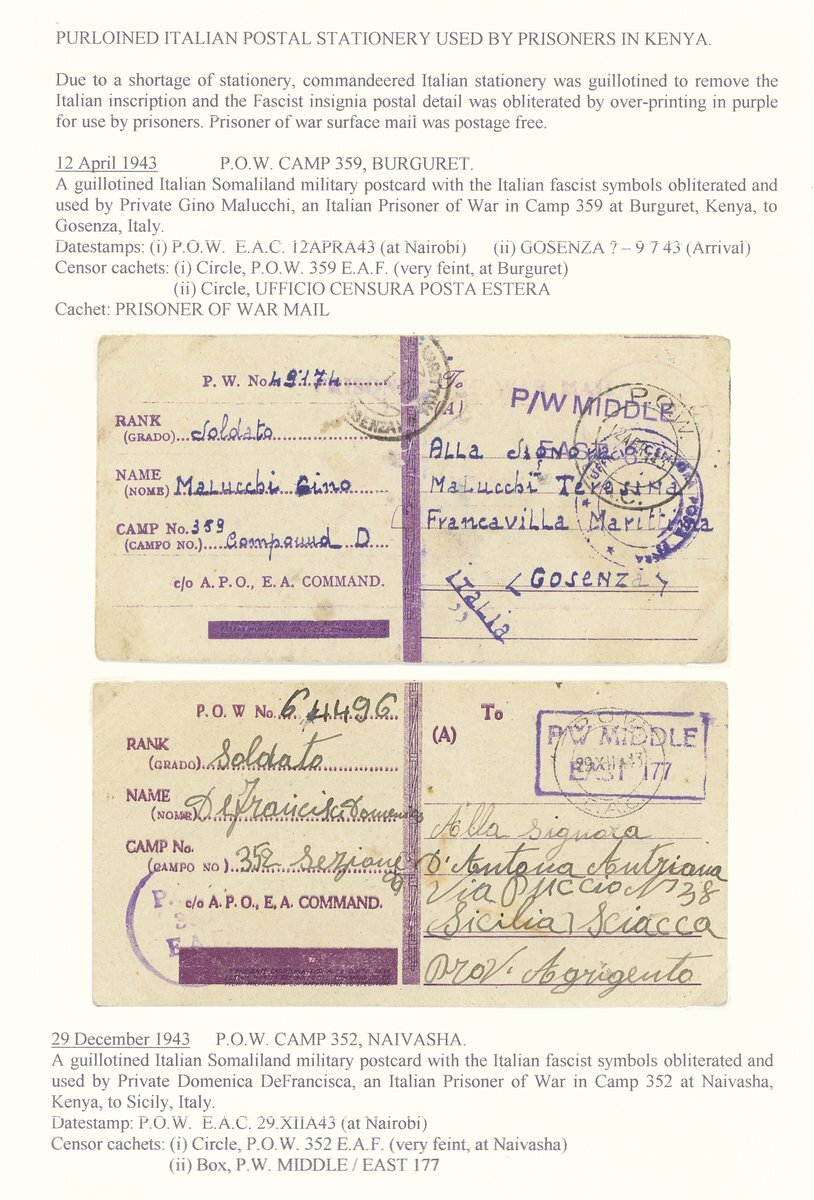 PURLOINED ITALIAN POSTAL STATIONERY USED BY PRISONERS IN KENYA.
Due to a shortage of stationery, commandeered Italian stationery was guillotined to remove the
Italian inscription and the Fascist insignia postal detail was obliterated by over-printing in purple
for use by prisoners. Prisoner of war surface mail was postage free.
12 April 1943 P.O.W. CAMP 359, BURGURET.
A guillotined Italian Somaliland military postcard with the Italian fascist symbols obliterated and
used by Private Gino Malucchi, an Italian Prisoner of War in Camp 359 at Burguret, Kenya, to
Gosenza, Italy.
Datestamps: (i) P.O.W. E.A.C. 12APRA43 (at Nairobi) (ii) GOSENZA ? – 9 7 43 (Arrival)
Censor cachets: (i) Circle, P.O.W. 359 E.A.F. (very feint, at Burguret)
(ii) Circle, UFFICIO CENSURA POSTA ESTERA
Cachet: PRISONER OF WAR MAIL
P. W. No. 49174
RANK
(GRADO) Soldato
NAME
(NOME) Malucchi Gino
CAMP No. 359
(CAMPO NO.) Compound D
c/o A. P. O., E. A. COMMAND.
To
(A)
P/W MIDDLE
EAST
P.O.W.
Alla Signora
Malucchi Teresina
Francavilla Marittima
(Gosenza)
Italia
P. O. W No. 64496
RANK
(GRADO) Soldato
NAME
(NOME) DeFrancisci Domenico
CAMP No.
(CAMPO NO) 352 Sezione
c/o A. P. O., E. A. COMMAND.
To
(A)
P/W MIDDLE
EAST 177
P.O.W.
29XIIA43
E.A.C.
Alla Signora
D'Antona Antriana
Via Puccio N 38
(Sicilia) Sciacca
Prov. Agrigento
29 December 1943 P.O.W. CAMP 352, NAIVASHA.
A guillotined Italian Somaliland military postcard with the Italian fascist symbols obliterated and
used by Private Domenica DeFrancisca, an Italian Prisoner of War in Camp 352 at Naivasha,
Kenya, to Sicily, Italy.
Datestamp: P.O.W. E.A.C. 29.XIIA43 (at Nairobi)
Censor cachets: (i) Circle, P.O.W. 352 E.A.F. (very feint, at Naivasha)
(ii) Box, P.W. MIDDLE / EAST 177